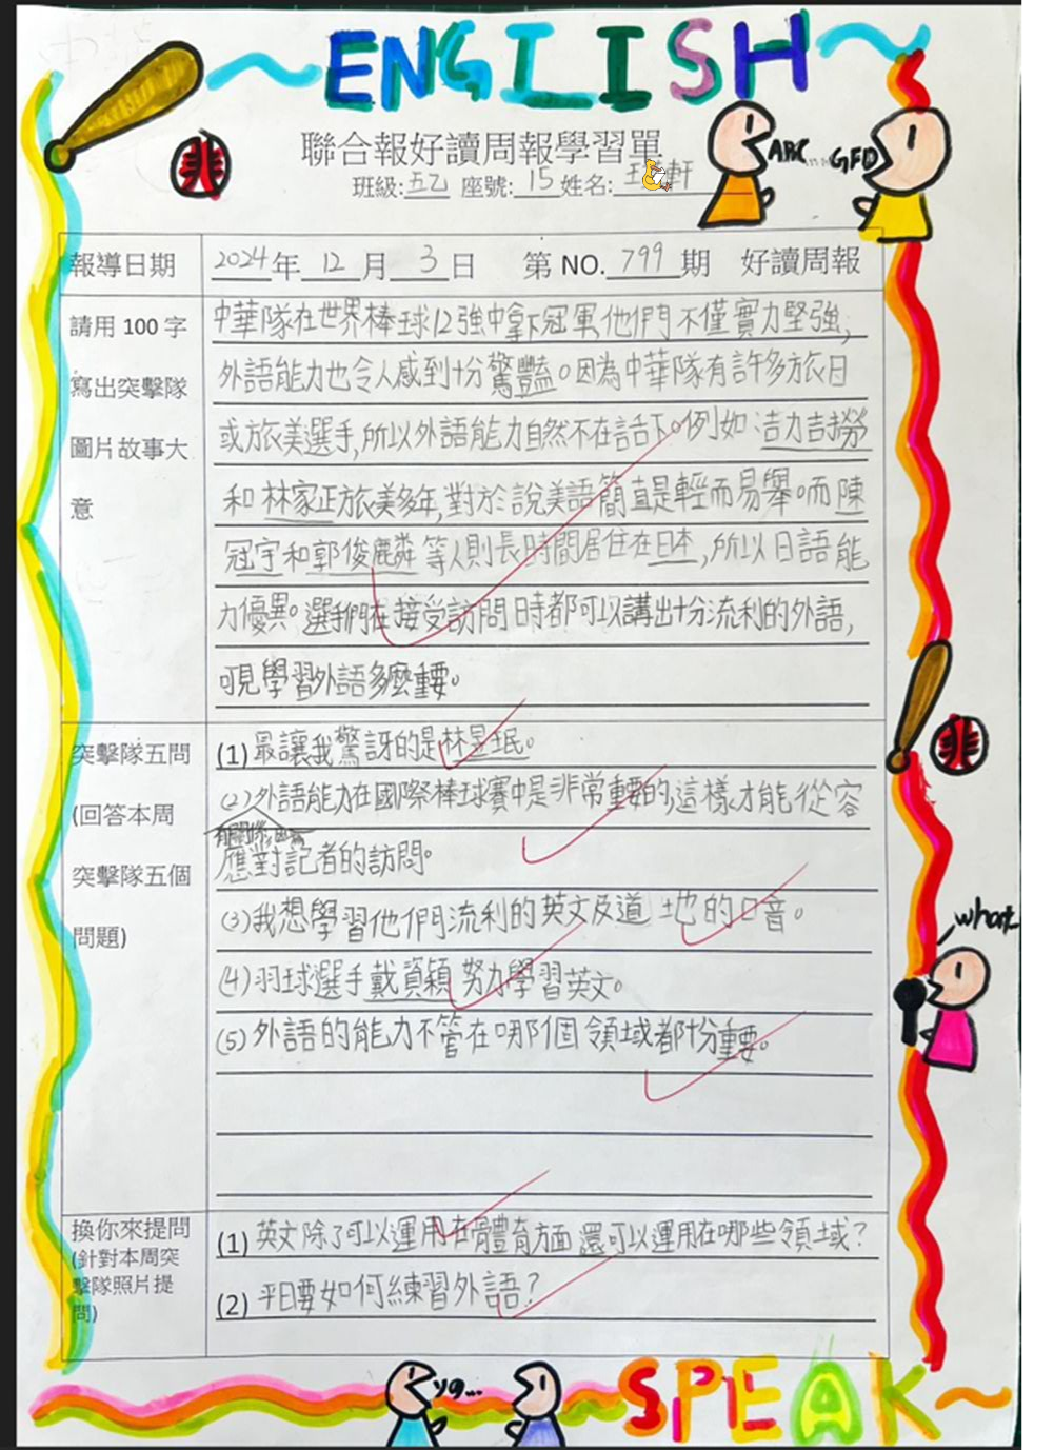 ~ENGLISH~
聯合報好讀周報學習單
ABC....GFD
班級:五乙 座號:15 姓名: 軒
報導日期 2024年 12 月 3 日 第 NO. 799 期 好讀周報
請用 100 字
寫出突擊隊
圖片故事大
意
中華隊在世界棒球12強中拿下冠軍,他們不僅實力堅強,
外語能力也令人感到十分驚豔。因為中華隊有許多旅日
或旅美選手,所以外語能力自然不在話下。例如:吉力吉撈
和林家正旅美多年,對於說美語簡直是輕而易舉。而陳
冠宇和郭俊麟等人則長時間居住在日本,所以日語能
力優異。選手們在接受訪問時都可以講出十分流利的外語,
可見學習外語多麼重要。
突擊隊五問
(回答本周
突擊隊五個
問題)
(1) 最讓我驚訝的是林昱珉。
(2)外語能力在國際棒球賽中是非常重要的,這樣才能從容
應對記者的訪問。
(3)我想學習他們流利的英文及道地的口音。
(4)羽球選手戴資穎努力學習英文。
(5)外語的能力不管在哪個領域都十分重要。
what
換你來提問
(針對本周突
擊隊照片提
問)
(1) 英文除了可以運用在體育方面還可以運用在哪些領域?
(2) 平日要如何練習外語?
yo...
~SPEAK~